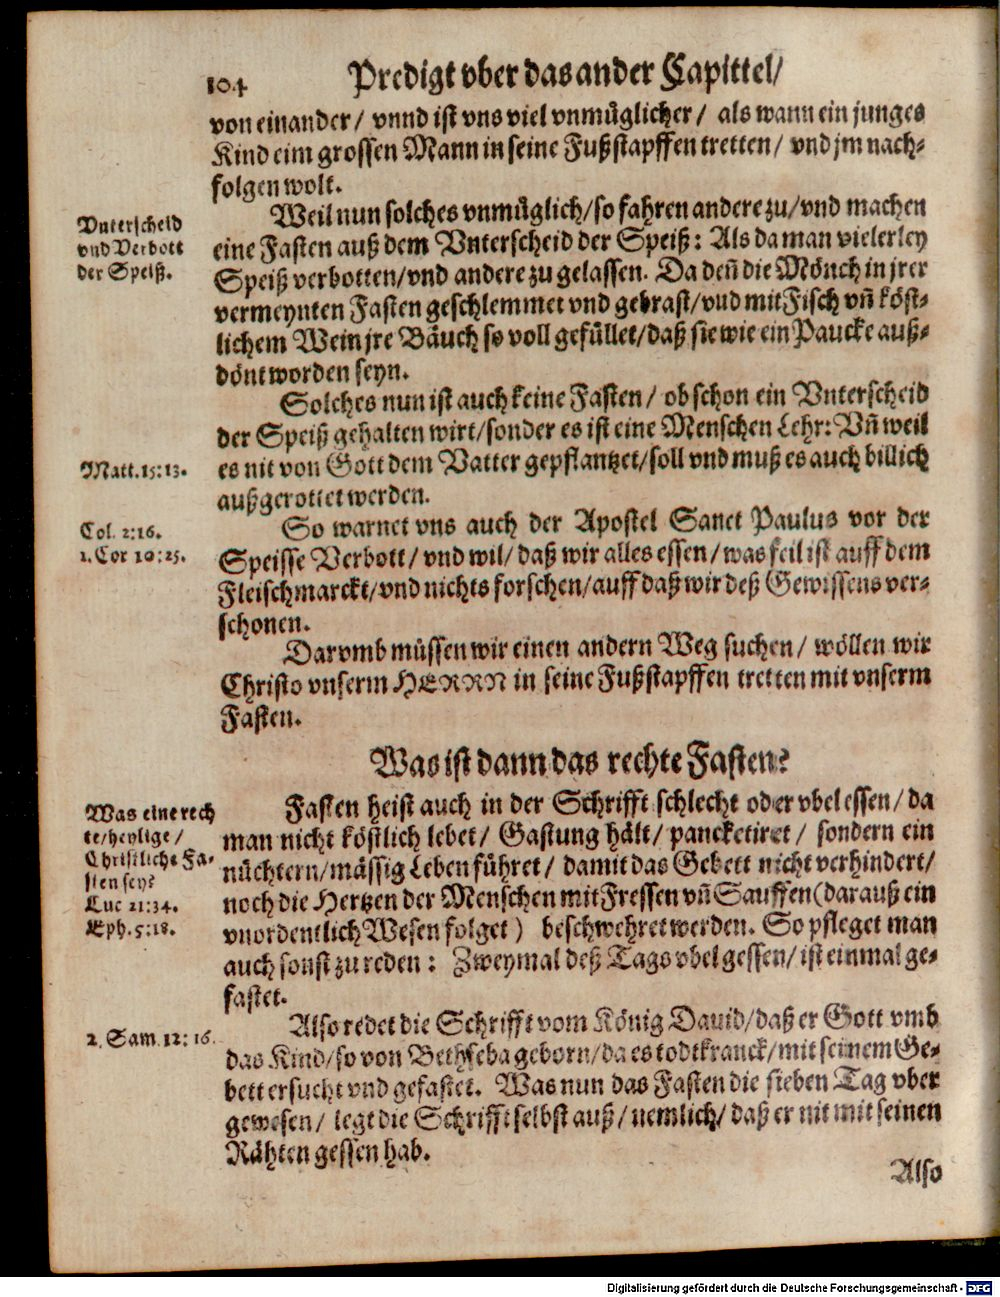 104 Predigt vber das ander Capittel/
von einander/ vnnd ist vns viel vnmüglicher/ als wann ein junges
Kind eim grossen Mann in seine Fußstapffen tretten/ vnd jm nach-
folgen wolt.
Vnterscheid
vnd Verbott
der Speiß.
Weil nun solches vnmüglich/ so fahren andere zu/ vnd machen
eine Fasten auß dem Vnterscheid der Speiß: Als da man vielerley
Speiß verbotten/ vnd andere zu gelassen. Da deñ die Mönch in jrer
vermeynten Fasten geschlemmet vnd gebrast/ vnd mit Fisch vñ köst-
lichem Wein jre Bäuch so voll gefüllet/ daß sie wie ein Paucke auß-
dönt worden seyn.
Solches nun ist auch keine Fasten/ ob schon ein Vnterscheid
der Speiß gehalten wirt/ sonder es ist eine Menschen Lehr: Vñ weil
Matt. 15:13.
es nit von Gott dem Vatter gepflantzet/ soll vnd muß es auch billich
außgerottet werden.
Col. 2:16.
1. Cor 10:25.
So warnet vns auch der Apostel Sanct Paulus vor der
Speisse Verbott/ vnd wil/ daß wir alles essen/ was feil ist auff dem
Fleischmarckt/ vnd nichts forschen/ auff daß wir deß Gewissens ver-
schonen.
Darvmb müssen wir einen andern Weg suchen/ wöllen wir
Christo vnserm HERRN in seine Fußstapffen tretten mit vnserm
Fasten.
Was ist dann das rechte Fasten?
Was eine rech
te/ heylige/
Christliche Fa-
sten sey?
Luc 21:34.
Eph. 5:18.
Fasten heist auch in der Schrifft schlecht oder vbel essen/ da
man nicht köstlich lebet/ Gastung hält/ pancketiret/ sondern ein
nüchtern/ mässig Leben führet/ damit das Gebett nicht verhindert/
noch die Hertzen der Menschen mit Fressen vñ Sauffen (darauß ein
vnordentlich Wesen folget) beschwehret werden. So pfleget man
auch sonst zu reden: Zweymal deß Tags vbel gessen/ ist einmal ge-
fastet.
2. Sam. 12:16.
Also redet die Schrifft vom König Dauid/ daß er Gott vmb
das Kind/ so von Bethseba geborn/ da es todtkranck/ mit seinem Ge-
bett ersucht vnd gefastet. Was nun das Fasten die sieben Tag vber
gewesen/ legt die Schrifft selbst auß/ nemlich/ daß er nit mit seinen
Rähten gessen hab.
Also
Digitalisierung gefördert durch die Deutsche Forschungsgemeinschaft - DFG